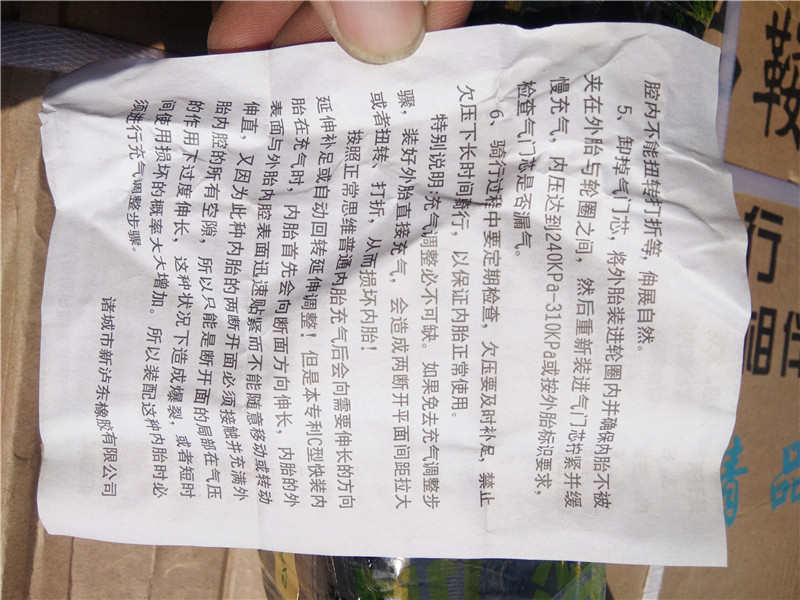 腔内不能扭转打折等，伸展自然。
5、卸掉气门芯，将外胎装进轮圈内并确保内胎不被
夹在外胎与轮圈之间，然后重新装进气门芯拧紧并缓
慢充气，内压达到240KPa-310KPa或按外胎标识要求，
检查气门芯是否漏气。
6、骑行过程中要定期检查，欠压要及时补足，禁止
欠压下长时间骑行，以保证内胎正常使用。
特别说明:充气调整必不可缺。如果免去充气调整步
骤，装好外胎直接充气，会造成两断开平面间距拉大
或者扭转、打折，从而损坏内胎！
按照正常思维普通内胎充气后会向需要伸长的方向
延伸补足或自动回转延伸调整！但是本专利C型快装内
胎在充气时，内胎首先会向断面方向伸长，内胎的外
表面与外胎内腔表面迅速贴紧而不能随意移动或转动
伸直，又因为此种内胎的两断开面必须接触并充满外
胎内腔的所有空隙，所以只能是断开面的局部在气压
的作用下过度伸长，这种状况下造成爆裂，或者短时
间使用损坏的概率大大增加。所以装配这种内胎时必
须进行充气调整步骤。
诸城市新泸东橡胶有限公司
鞍
行
品